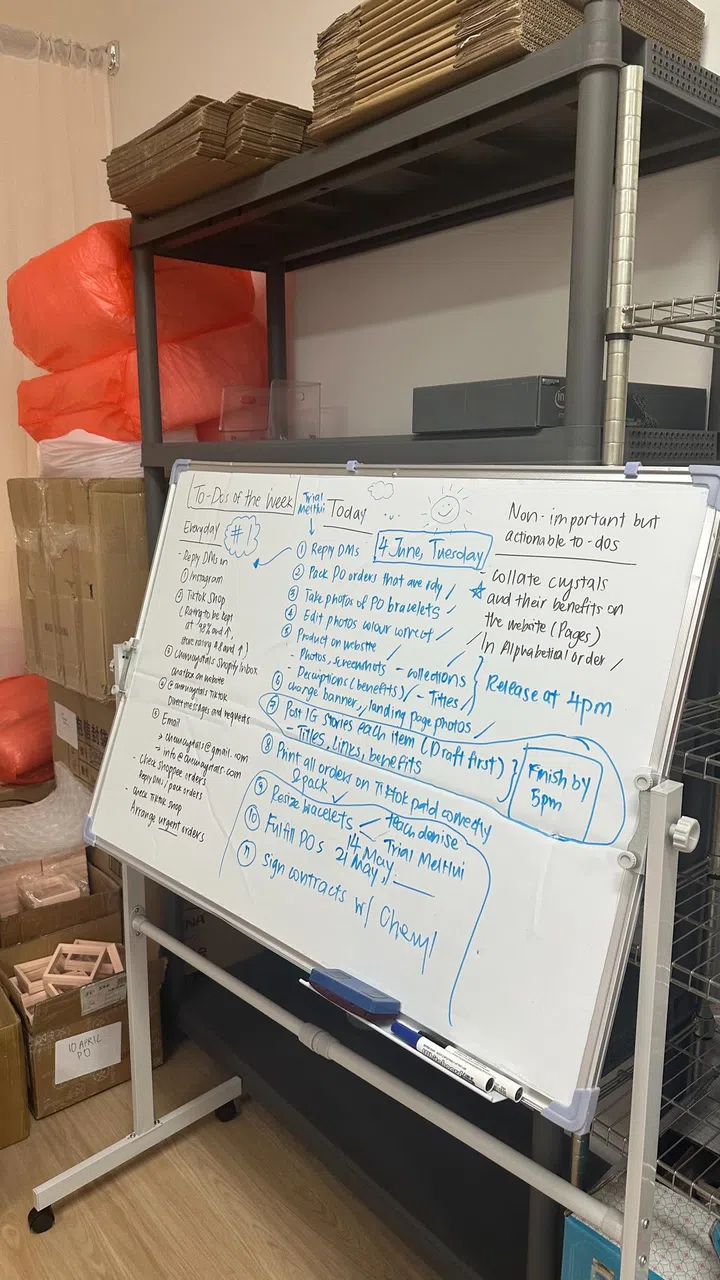 To-Dos of the Week
Everyday
#1
- Reply DMs on
① Instagram
② Tiktok Shop
(Rating to be kept
at 98% and ↑,
③
Shopify Inbox
chatbox on website
④ Tiktok
⑤ Email
- Check Shopee orders
Reply DMs / pack orders
- Check Tiktok Shop
Arrange urgent orders
Trial
MeiHui
Today
4 June, Tuesday
① Reply DMs
② Pack PO orders that are rdy /
③ Take photos of PO bracelets
④ Edit photos colour correct
⑤ Product on website
- Photos, Screenshots - collections
- Descriptions (benefits) / - Titles /
Release at 4pm
⑥ Change banner, landing page photos
⑦ Post IG stories each item (Draft first)
- Titles, Links, benefits
Finish by
5pm
⑧ Print all orders on TikTok paid correctly
& pack
⑨ Resize bracelets
Teach denise
Trial MeiHui
⑩ Fulfill POs 14 May
21 May
⑪ Sign contracts w/ Cheryl
Non-important but
actionable to-dos
- Collate crystals
and their benefits on
the website (Pages)
In Alphabetical order /
10 APRIL
PO